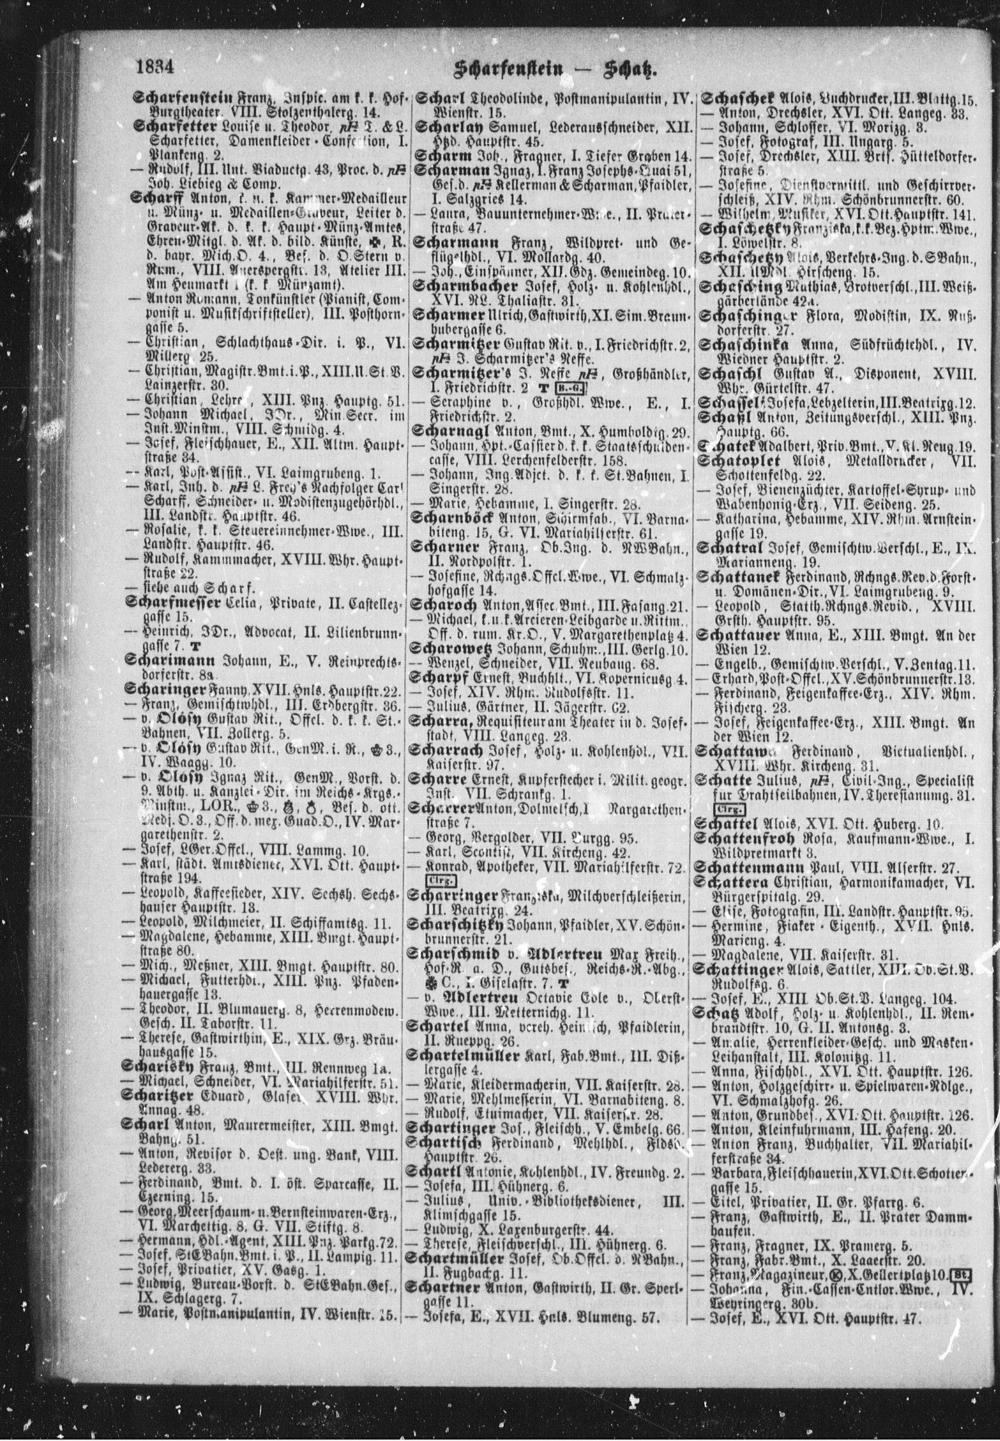 1834
Scharfenstein — Schatz.
Scharfenstein Franz, Inspic. am k. k. Hof-
Burgtheater, VIII. Stolzenthalerg. 14.
Scharfetter Louise u. Theodor, pH T. & L.
Scharfetter, Damenkleider-Confection, I.
Plankeng. 2.
— Rudolf, III. Unt. Viaductg. 43, Proc. d. pH
Joh. Liebieg & Comp.
Scharff Anton, k. u. k. Kammer-Medailleur
u. Münz- u. Medaillen-Graveur, Leiter d.
Graveur-Ak. d. k. k. Haupt-Münz-Amtes,
Ehren-Mitgl. d. Ak. d. bild. Künste, R.
d. bayr. Mich.O. 4., Bes. d. O.Stern v.
Rum., VIII. Auerspergstr. 13, Atelier III.
Am Heumarkt 1 (k. k. Münzamt).
— Anton Romann, Tonkünstler (Pianist, Com-
ponist u. Musikschriftsteller), III. Posthorn-
gasse 5.
— Christian, Schlachthaus-Dir. i. P., VI.
Millerg. 25.
— Christian, Magistr.Bmt. i. P., XIII. U. St. V.
Lainzerstr. 30.
— Christian, Lehrer, XIII. Pnz. Hauptg. 51.
— Johann Michael, JDr., Min.Secr. im
Just.Minstm., VIII. Schmidg. 4.
— Josef, Fleischhauer, E., XII. Altm. Haupt-
straße 34.
— Karl, Post-Assist., VI. Laimgrubeng. 1.
— Karl, Inh. d. pH L. Frey's Nachfolger Carl
Scharff, Schneider- u. Modistenzugehörhdl.,
III. Landstr. Hauptstr. 46.
— Rosalie, k. k. Steuereinnehmer-Wwe., III.
Landstr. Hauptstr. 46.
— Rudolf, Kammmacher, XVIII. Whr. Haupt-
straße 22.
— siehe auch Scharf.
Scharfmesser Celia, Private, II. Castellez-
gasse 15.
— Heinrich, JDr., Advocat, II. Lilienbrunn-
gasse 7. T
Scharimann Johann, E., V. Reinprechts-
dorferstr. 8a.
Scharinger Fanny, XVII. Hnls. Hauptstr. 22.
— Franz, Gemischtwhdl., III. Erdbergstr. 36.
— v. Olósy Gustav Rit., Offcl. d. k. k. St.-
Bahnen, VII. Zollerg. 5.
— v. Olósy Gustav Rit., GenM. i. R., 3.,
IV. Waagg. 10.
— v. Olósy Ignaz Rit., GenM., Vorst. d.
9. Abth. u. Kanzlei-Dir. im Reichs-Krgs.-
Minstm., LOR., 3., Bes. d. ott.
Medj.O.3., Off. d. mex. Guad.O., IV. Mar-
garethenstr. 2.
— Josef, LGer.Offcl., VIII. Lammg. 10.
— Karl, städt. Amtsdiener, XVI. Ott. Haupt-
straße 194.
— Leopold, Kaffeesieder, XIV. Sechsh. Sechs-
hauser Hauptstr. 13.
— Leopold, Milchmeier, II. Schiffamtsg. 11.
— Magdalene, Hebamme, XIII. Bmgt. Haupt-
straße 80.
— Mich., Meßner, XIII. Bmgt. Hauptstr. 80.
— Michael, Futterhdl., XIII. Pnz. Pfaden-
hauergasse 13.
— Theodor, II. Blumauerg. 8, Herrenmodew.
Gesch. II. Taborstr. 11.
— Therese, Gastwirthin, E., XIX. Grz. Bräu-
hausgasse 15.
Scharisky Franz, Bmt., III. Rennweg 1a.
— Michael, Schneider, VI. Mariahilferstr. 51.
Scharitzer Eduard, Glaser, XVIII. Whr.
Annag. 48.
Scharl Anton, Maurermeister, XIII. Bmgt.
Bahng. 51.
— Anton, Revisor d. Oest. ung. Bank, VIII.
Ledererg. 33.
— Ferdinand, Bmt. d. I. öst. Sparcasse, II.
Czerning. 15.
— Georg, Meerschaum- u. Bernsteinwaren-Erz.,
VI. Marchettig. 8, G. VII. Stiftg. 8.
— Hermann, Hdl.-Agent, XIII. Pnz. Parkg. 72.
— Josef, StEBahn.Bmt. i. P., II. Lampig. 11.
— Josef, Privatier, XV. Gasg. 1.
— Ludwig, Bureau-Vorst. d. StEBahn.Ges.,
IX. Schlagerg. 7.
— Marie, Postmanipulantin, IV. Wienstr. 15.
Scharl Theodolinde, Postmanipulantin, IV.
Wienstr. 15.
Scharlay Samuel, Lederausschneider, XII.
Htzd. Hauptstr. 45.
Scharm Joh., Fragner, I. Tiefer Graben 14.
Scharman Ignaz, I. Franz Josephs-Quai 51,
Ges. d. pH Kellerman & Scharman, Pfaidler,
I. Salzgries 14.
— Laura, Bauunternehmer-Wwe., II. Prater-
straße 47.
Scharmann Franz, Wildpret- und Ge-
flügelhdl., VI. Mollardg. 40.
— Joh., Einspänner, XII. Gdz. Gemeindeg. 10.
Scharmbacher Josef, Holz- u. Kohlenhdl.,
XVI. NL. Thaliastr. 31.
Scharmer Ulrich, Gastwirth, XI. Sim. Braun-
hubergasse 6.
Scharmitzer Gustav Rit. v., I. Friedrichstr. 2,
pH J. Scharmitzer's Neffe.
Scharmitzer's J. Neffe pH, Großhändler,
I. Friedrichstr. 2 T B.-G.
— Seraphine v., Großhdl. Wwe., E., I.
Friedrichstr. 2.
Scharnagl Anton, Bmt., X. Humboldtg. 29.
— Johann, Hpt.-Cassier d. k. k. Staatsschulden-
casse, VIII. Lerchenfelderstr. 158.
— Johann, Ing.Adjct. d. k. k. St.Bahnen, I.
Singerstr. 28.
— Marie, Hebamme, I. Singerstr. 28.
Scharnböck Anton, Schirmfab., VI. Barna-
biteng. 15, G. VI. Mariahilferstr. 61.
Scharner Franz, Ob.Ing. d. NWBahn.,
II. Nordpolstr. 1.
— Josefine, Rchngs.Offcl.Wwe., VI. Schmalz-
hofgasse 14.
Scharoch Anton, Assec.Bmt., III. Fasang. 21.
— Michael, k. u. k. Arcieren-Leibgarde u. Rittm.,
Off. d. rum. Kr.O., V. Margarethenplatz 4.
Scharowetz Johann, Schuhm., III. Gerlg. 10.
— Wenzel, Schneider, VII. Neubaug. 68.
Scharpf Ernest, Buchhlt., VI. Kopernicusg 4.
— Josef, XIV. Rhm. Rudolfsstr. 11.
— Julius, Gärtner, II. Jägerstr. 62.
Scharra, Requisiteur am Theater in d. Josef-
stadt, VIII. Langeg. 23.
Scharrach Josef, Holz- u. Kohlenhdl., VII.
Kaiserstr. 97.
Scharre Ernest, Kupferstecher i. Milit. geogr.
Inst. VII. Schrankg. 1.
Scharrer Anton, Dolmetsch, I. Margarethen-
straße 7.
— Georg, Vergolder, VII. Burgg. 95.
— Karl, Scontist, VII. Kircheng. 42.
— Konrad, Apotheker, VII. Mariahilferstr. 72.
Clrg.
Scharringer Franziska, Milchverschleißerin,
III. Beatrixg. 24.
Scharschitzky Johann, Pfaidler, XV. Schön-
brunnerstr. 21.
Scharschmid v. Adlertreu Max Freih.,
Hof-R. a. D., Gutsbes., Reichs-R.-Abg.,
C., I. Giselastr. 7. T
— v. Adlertreu Octavie Edle v., Oberst-
Wwe., III. Metternichg. 11.
Schartel Anna, vereh. Heinisch, Pfaidlerin,
II. Rueppg. 26.
Schartelmüller Karl, Fab.Bmt., III. Diß-
lergasse 4.
— Marie, Kleidermacherin, VII. Kaiserstr. 28.
— Marie, Mehlmesserin, VI. Barnabiteng. 8.
— Rudolf, Etuimacher, VII. Kaiserstr. 28.
Schartinger Jos., Fleischh., V. Embelg. 66.
Schartisch Ferdinand, Mehlhdl., Fldsd.
Hauptstr. 26.
Schartl Antonie, Kohlenhdl., IV. Freundg. 2.
— Josefa, III. Hühnerg. 6.
— Julius, Univ.-Bibliotheksdiener, III.
Klimschgasse 15.
— Ludwig, X. Laxenburgerstr. 44.
— Therese, Fleischverschl., III. Hühnerg. 6.
Schartmüller Josef, Ob.Offcl. d. NBahn.,
II. Fugbachg. 11.
Schartner Anton, Gastwirth, II. Gr. Sperl-
gasse 11.
— Josefa, E., XVII. Hnls. Blumeng. 57.
Schaschek Alois, Buchdrucker, III. Blattg. 15.
— Anton, Drechsler, XVI. Ott. Langeg. 33.
— Johann, Schlosser, VI. Morizg. 3.
— Josef, Fotograf, III. Ungarg. 5.
— Josef, Drechsler, XIII. Brts. Hütteldorfer-
straße 5.
— Josefine, Dienstvermittl. und Geschirrver-
schleiß, XIV. Rhm. Schönbrunnerstr. 60.
— Wilhelm, Musiker, XVI. Ott. Hauptstr. 141.
Schaschetzky Franziska, k. k. Bez.Hptm.Wwe.,
I. Löwelstr. 8.
Schaschetzy Alois, Verkehrs-Ing. d. SBahn.,
XII. UMdl. Hirscheng. 15.
Schasching Mathias, Brotverschl., III. Weiß-
gärberlände 42a.
Schaschinger Flora, Modistin, IX. Nuß-
dorferstr. 27.
Schaschinka Anna, Südfrüchtehdl., IV.
Wiedner Hauptstr. 2.
Schaschl Gustav A., Disponent, XVIII.
Whr. Gürtelstr. 47.
Schassel Josefa, Lebzelterin, III. Beatrixg. 12.
Schaßl Anton, Zeitungsverschl., XIII. Pnz.
Hauptg. 66.
Schatek Adalbert, Priv.Bmt., V. Kl. Neug. 19.
Schatoplet Alois, Metalldrucker, VII.
Schottenfeldg. 22.
— Josef, Bienenzüchter, Kartoffel-Syrup- und
Wabenhonig-Erz., VII. Seideng. 25.
— Katharina, Hebamme, XIV. Rhm. Arnstein-
gasse 19.
Schatral Josef, Gemischtw.Verschl., E., IX.
Marianneng. 19.
Schattanek Ferdinand, Rchngs.Rev. d. Forst-
u. Domänen-Dir., VI. Laimgrubeng. 9.
— Leopold, Statth.Rchngs.Revid., XVIII.
Grsth. Hauptstr. 95.
Schattauer Anna, E., XIII. Bmgt. An der
Wien 12.
— Engelb., Gemischtw.Verschl., V. Zentag. 11.
— Erhard, Post-Offcl., XV. Schönbrunnerstr. 13.
— Ferdinand, Feigenkaffee-Erz., XIV. Rhm.
Fischerg. 23.
— Josef, Feigenkaffee-Erz., XIII. Bmgt. An
der Wien 12.
Schattawa Ferdinand, Victualienhdl.,
XVIII. Whr. Kircheng. 31.
Schatte Julius, pH, Civil-Ing., Specialist
für Drahtseilbahnen, IV. Theresianumg. 31.
Clrg.
Schattel Alois, XVI. Ott. Huberg. 10.
Schattenfroh Rosa, Kaufmann-Wwe., I.
Wildpretmarkt 3.
Schattenmann Paul, VIII. Alserstr. 27.
Schattera Christian, Harmonikamacher, VI.
Bürgerspitalg. 29.
— Elise, Fotografin, III. Landstr. Hauptstr. 95.
— Hermine, Fiaker-Eigenth., XVII. Hnls.
Marieng. 4.
— Magdalene, VII. Kaiserstr. 31.
Schattinger Alois, Sattler, XIII. Ob.St.V.
Rudolfsg. 6.
— Josef, E., XIII. Ob.St.V. Langeg. 104.
Schatz Adolf, Holz- u. Kohlenhdl., II. Rem-
brandtstr. 10, G. II. Antonsg. 3.
— Amalie, Herrenkleider-Gesch. und Masken-
Leihanstalt, III. Kolonitzg. 11.
— Anna, Fischhdl., XVI. Ott. Hauptstr. 126.
— Anton, Holzgeschirr- u. Spielwaren-Ndlge.,
VI. Schmalzhofg. 26.
— Anton, Grundbes., XVI. Ott. Hauptstr. 126.
— Anton, Kleinfuhrmann, III. Hafeng. 20.
— Anton Franz, Buchhalter, VII. Mariahil-
ferstraße 34.
— Barbara, Fleischhauerin, XVI. Ott. Schotter-
gasse 15.
— Eitel, Privatier, II. Gr. Pfarrg. 6.
— Franz, Gastwirth, E., II. Prater Damm-
haufen.
— Franz, Fragner, IX. Pramerg. 5.
— Franz, Fabr.Bmt., X. Laaerstr. 20.
— Franz, Magazineur, X. Gellertplatz 10. St.
— Johanna, Fin.-Cassen-Cntlor.Wwe., IV.
Weyringerg. 30b.
— Josef, E., XVI. Ott. Hauptstr. 47.